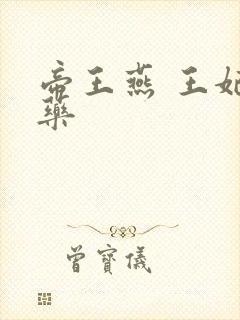 帝王燕 王妃
藥
曾寶儀